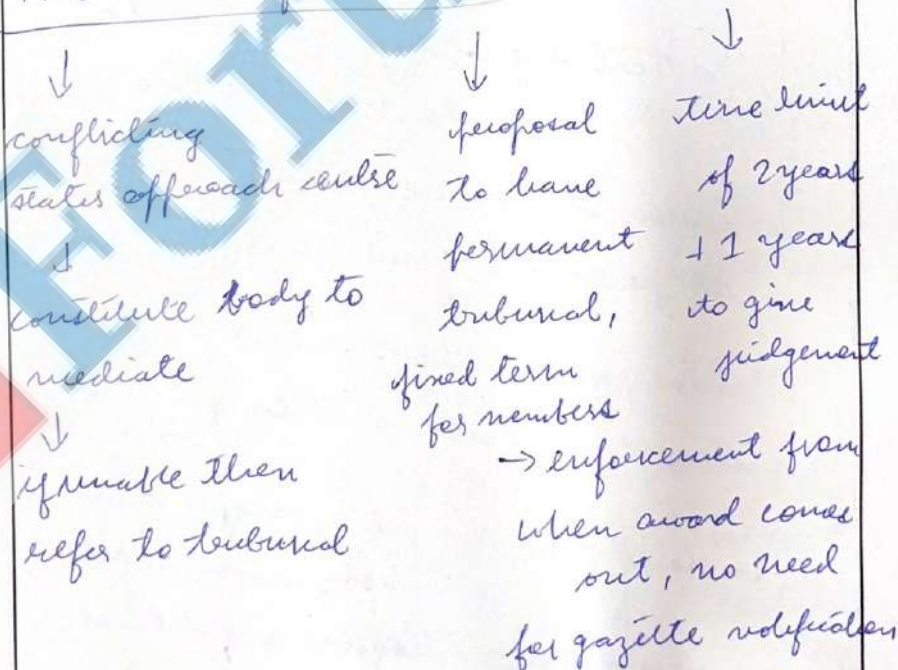 conflicting
states approach centre
constitute body to
mediate
if unable then
refer to tribunal
proposal
to have
permanent
tribunal,
fixed term
for members
time limit
of 2 years
+ 1 years
to give
judgement
→ enforcement from
when award comes
out, no need
for gazette notification
For